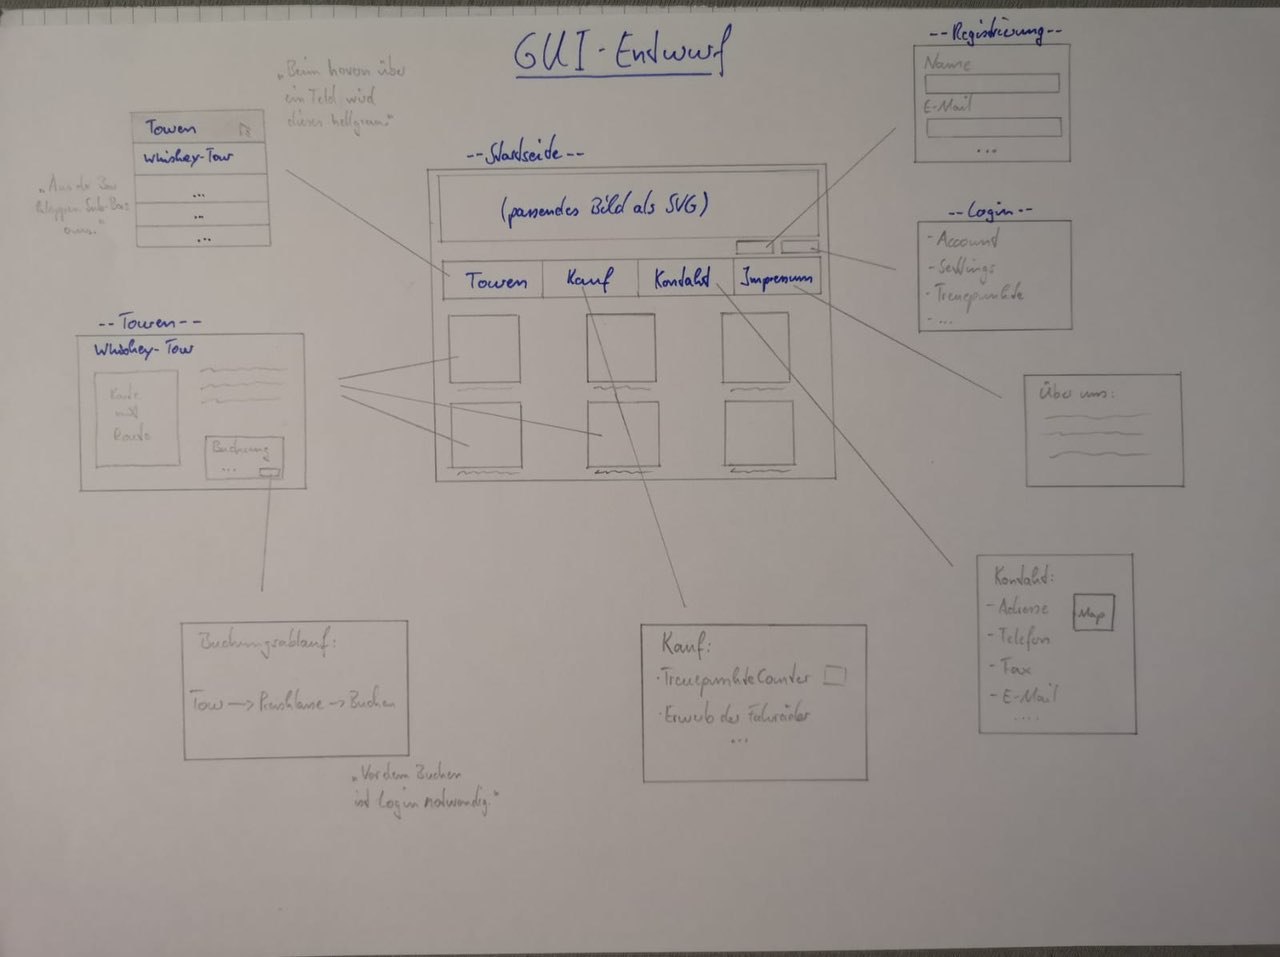 GUI-Entwurf
--Registrierung--
Name
E-Mail
...
„Beim hovern über
ein Feld, wird
dieses hellgrau."
Touren
Whiskey-Tour
...
...
...
„Aus der Bar
klappen Sub-Bars
aus."
--Startseite--
(passendes Bild als SVG)
Touren
Kauf
Kontakt
Impressum
--Login--
- Account
- Settings
- Treuepunkte
- ...
--Touren--
Whiskey-Tour
Karte
mit
Route
Buchung
...
Über uns:
Kontakt:
- Adresse
- Telefon
- Fax
- E-Mail
....
Map
Buchungsablauf:
Tour -> Preisklasse -> Buchen
„Vor dem Buchen
ist Login notwendig."
Kauf:
· Treuepunkte Counter
· Erwerb der Fahrräder
...